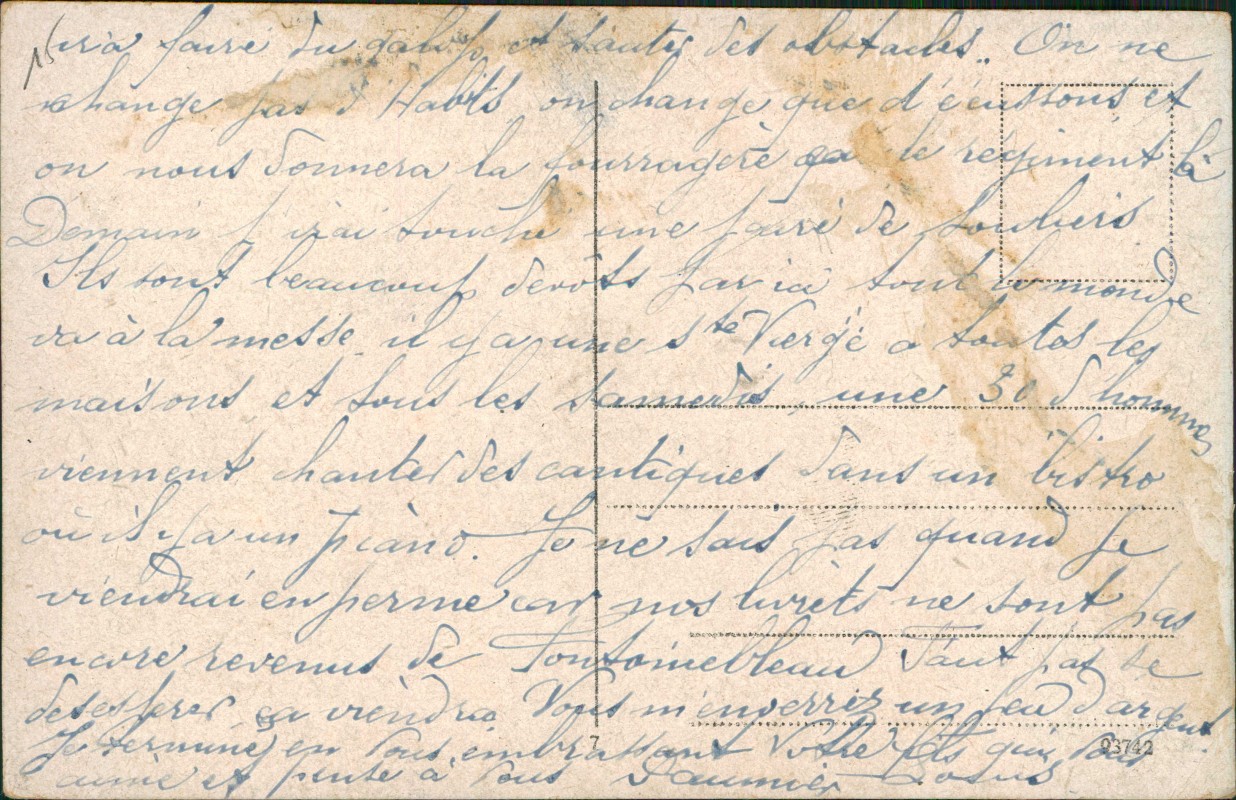 15
ira faire du galop et sauter des obstacles.. On ne
change pas d'Habits on change que d'écussons et
on nous donnera la fourragère ça le regiment là
Demain j irai touché une paire de souliers
Ils sont beaucoup devôts par ici tout le monde
va à la messe il y a une Ste Vierge a toutes les
maisons et tous les samedis, une 30e d'hommes
viennent chanter des cantiques dans un bistro
où il y a un piàno. Je ne sais pas quand je
viendrai en perme car nos livrèts ne sont pas
encore revenus de Fontainebleau Faut pas se
desesperer ça viendra Vous m'enverrez un peu d'argent
Je termine en Vous embrassant Votre Fils qui Vous
aime et pense à Vous Louis
7
93742